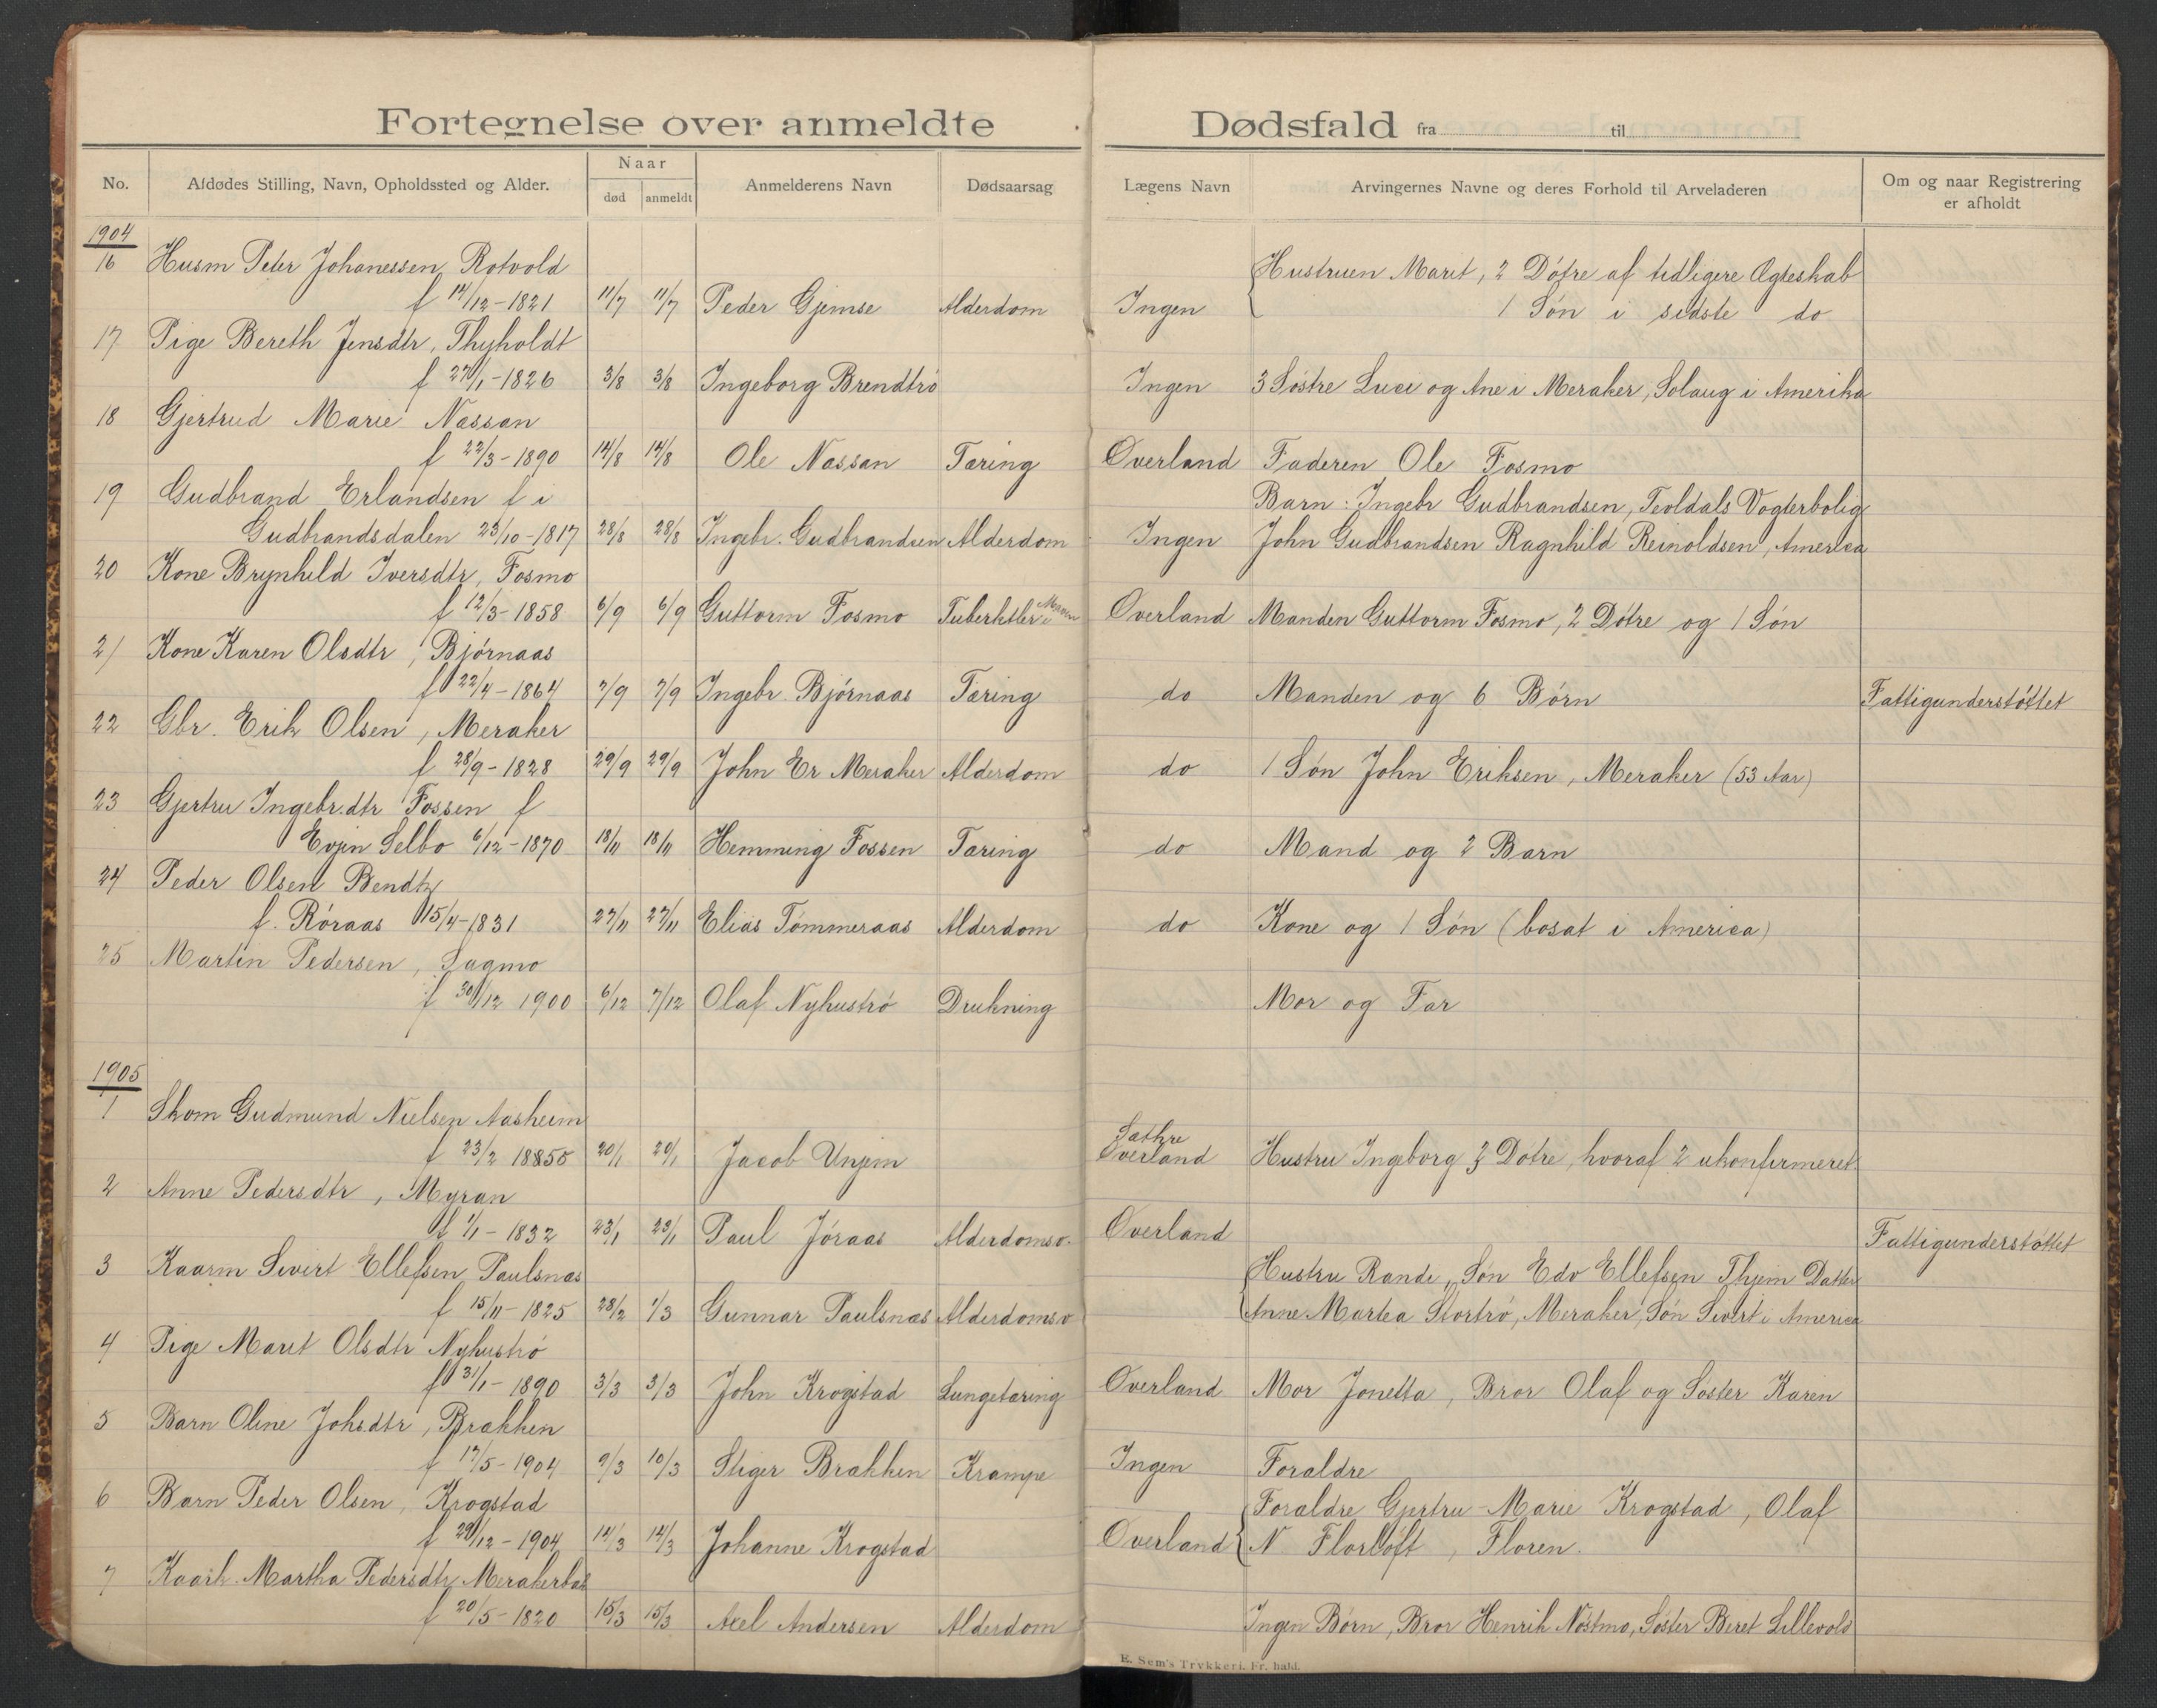 Fortegnelse over anmeldte Dødsfald fra til
No. Afdødes Stilling, Navn, Opholdssted og Alder. Naar død anmeldt Anmelderens Navn Dødsaarsag Lægens Navn Arvingernes Navne og deres Forhold til Arveladeren Om og naar Registrering er afholdt
1904
16 Husm Peter Johanessen Rotvold Hustruen Marit, 2 Døtre af tidligere Ægteskab
f 14/12-1821 11/7 11/7 Peder Gjemse Alderdom Ingen 1 Søn i sidste do
17 Pige Bereth Jensdtr, Thyholdt
f 27/1-1826 3/8 3/8 Ingeborg Brendtrø Ingen 3 Søstre Luci og Ane i Meraker, Solaug i Amerika
18 Gjertrud Marie Nassan
f 22/3-1890 14/8 14/8 Ole Nassan Tæring Overland Faderen Ole Fosmo
19 Gudbrand Erlandsen f i Barn: Ingebr Gudbrandsen, Tevldals Vogterbolig
Gudbrandsdalen 23/10-1817 28/8 28/8 Ingebr. Gudbrandsen Alderdom Ingen John Gudbrandsen Ragnhild Reinoldsen, America
20 Kone Brynhild Iversdtr, Fosmo
f 12/3-1858 6/9 6/9 Guttorm Fosmo Tuberkler i Maven Overland Manden Guttorm Fosmo, 2 Døtre og 1 Søn
21 Kone Karen Olsdtr, Bjørnaas
f 22/4-1864 7/9 7/9 Ingebr. Bjørnaas Tæring do Manden og 6 Børn Fattigunderstøttet
22 Gbr. Erik Olsen, Meraker
f 28/9-1828 29/9 29/9 John Er Meraker Alderdom do 1 Søn John Eriksen, Meraker (53 Aar)
23 Gjertru Ingebr.dtr Fossen f
Evjen Selbo 6/12-1870 18/11 18/11 Hemming Fossen Tæring do Mand og 2 Barn
24 Peder Olsen Bendtz
f. Røraas 15/4-1831 27/11 27/11 Elias Tømmeraas Alderdom do Kone og 1 Søn (bosat i America)
25 Martin Pedersen, Sagmo
f 30/12 1900 6/12 7/12 Olaf Nyhustrø Drukning Mor og Far
1905
1 Skom Gudmund Nielsen Aasheim
f 23/2 20/1 20/1 Jacob Unjem Sæthre Overland Hustru Ingeborg 3 Døtre, hvoraf 2 ukonfirmeret
2 Anne Pedersdtr, Myran
f 1/1-1832 23/1 23/1 Paul Jøraas Alderdomsv. Overland Fattigunderstøttet
3 Kaarm Sivert Ellefsen Paulsnæs Hustru Randi, Søn Edv Ellefsen Thjem Datter
f 15/11-1825 28/2 1/3 Gunnar Paulsnæs Alderdomsv Anne Martea Stortrø, Meraker, Søn Sivert i America
4 Pige Marit Olsdtr Nyhustrø
f 31/1-1890 3/3 3/3 John Krogstad Lungetæring Overland Mor Jonetta, Bror Olaf og Søster Karen
5 Barn Oline Johsdtr, Brækken
f 17/5-1904 9/3 10/3 Stiger Brækken Krampe Ingen Forældre
6 Barn Peder Olsen, Krogstad Forældre Gjertru-Marie Krogstad, Olaf
f 29/12-1904 14/3 14/3 Johanne Krogstad Overland N Florloft, Floren.
7 Kaark. Martha Pedersdtr
f 20/5-1820 15/3 15/3 Axel Andersen Alderdom Ingen Børn, Bror Henrik Nøstmo, Søster Beret Lillevold
E. Sem's Trykkeri. Fr.hald.